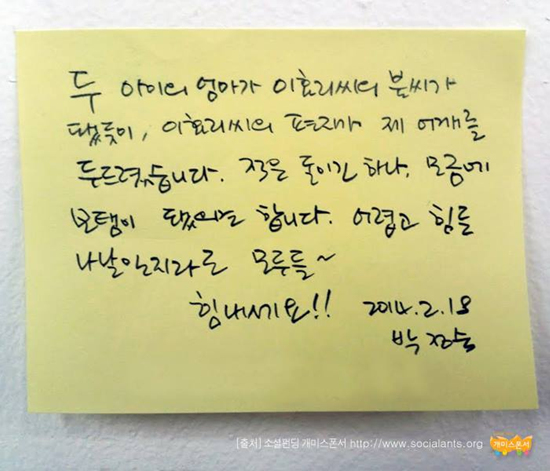 두 아이의 엄마가 이효리씨의 불씨가
됐듯이, 이효리씨의 편지가 제 어깨를
두드렸습니다. 작은 돈이긴 하나, 모금에
보탬이 됐으면 합니다. 어렵고 힘든
나날인지라도 모두들~
힘내세요!! 2014.2.18
박
[출처] 소셜펀딩 개미스폰서 http://www.socialants.org
개미스폰서